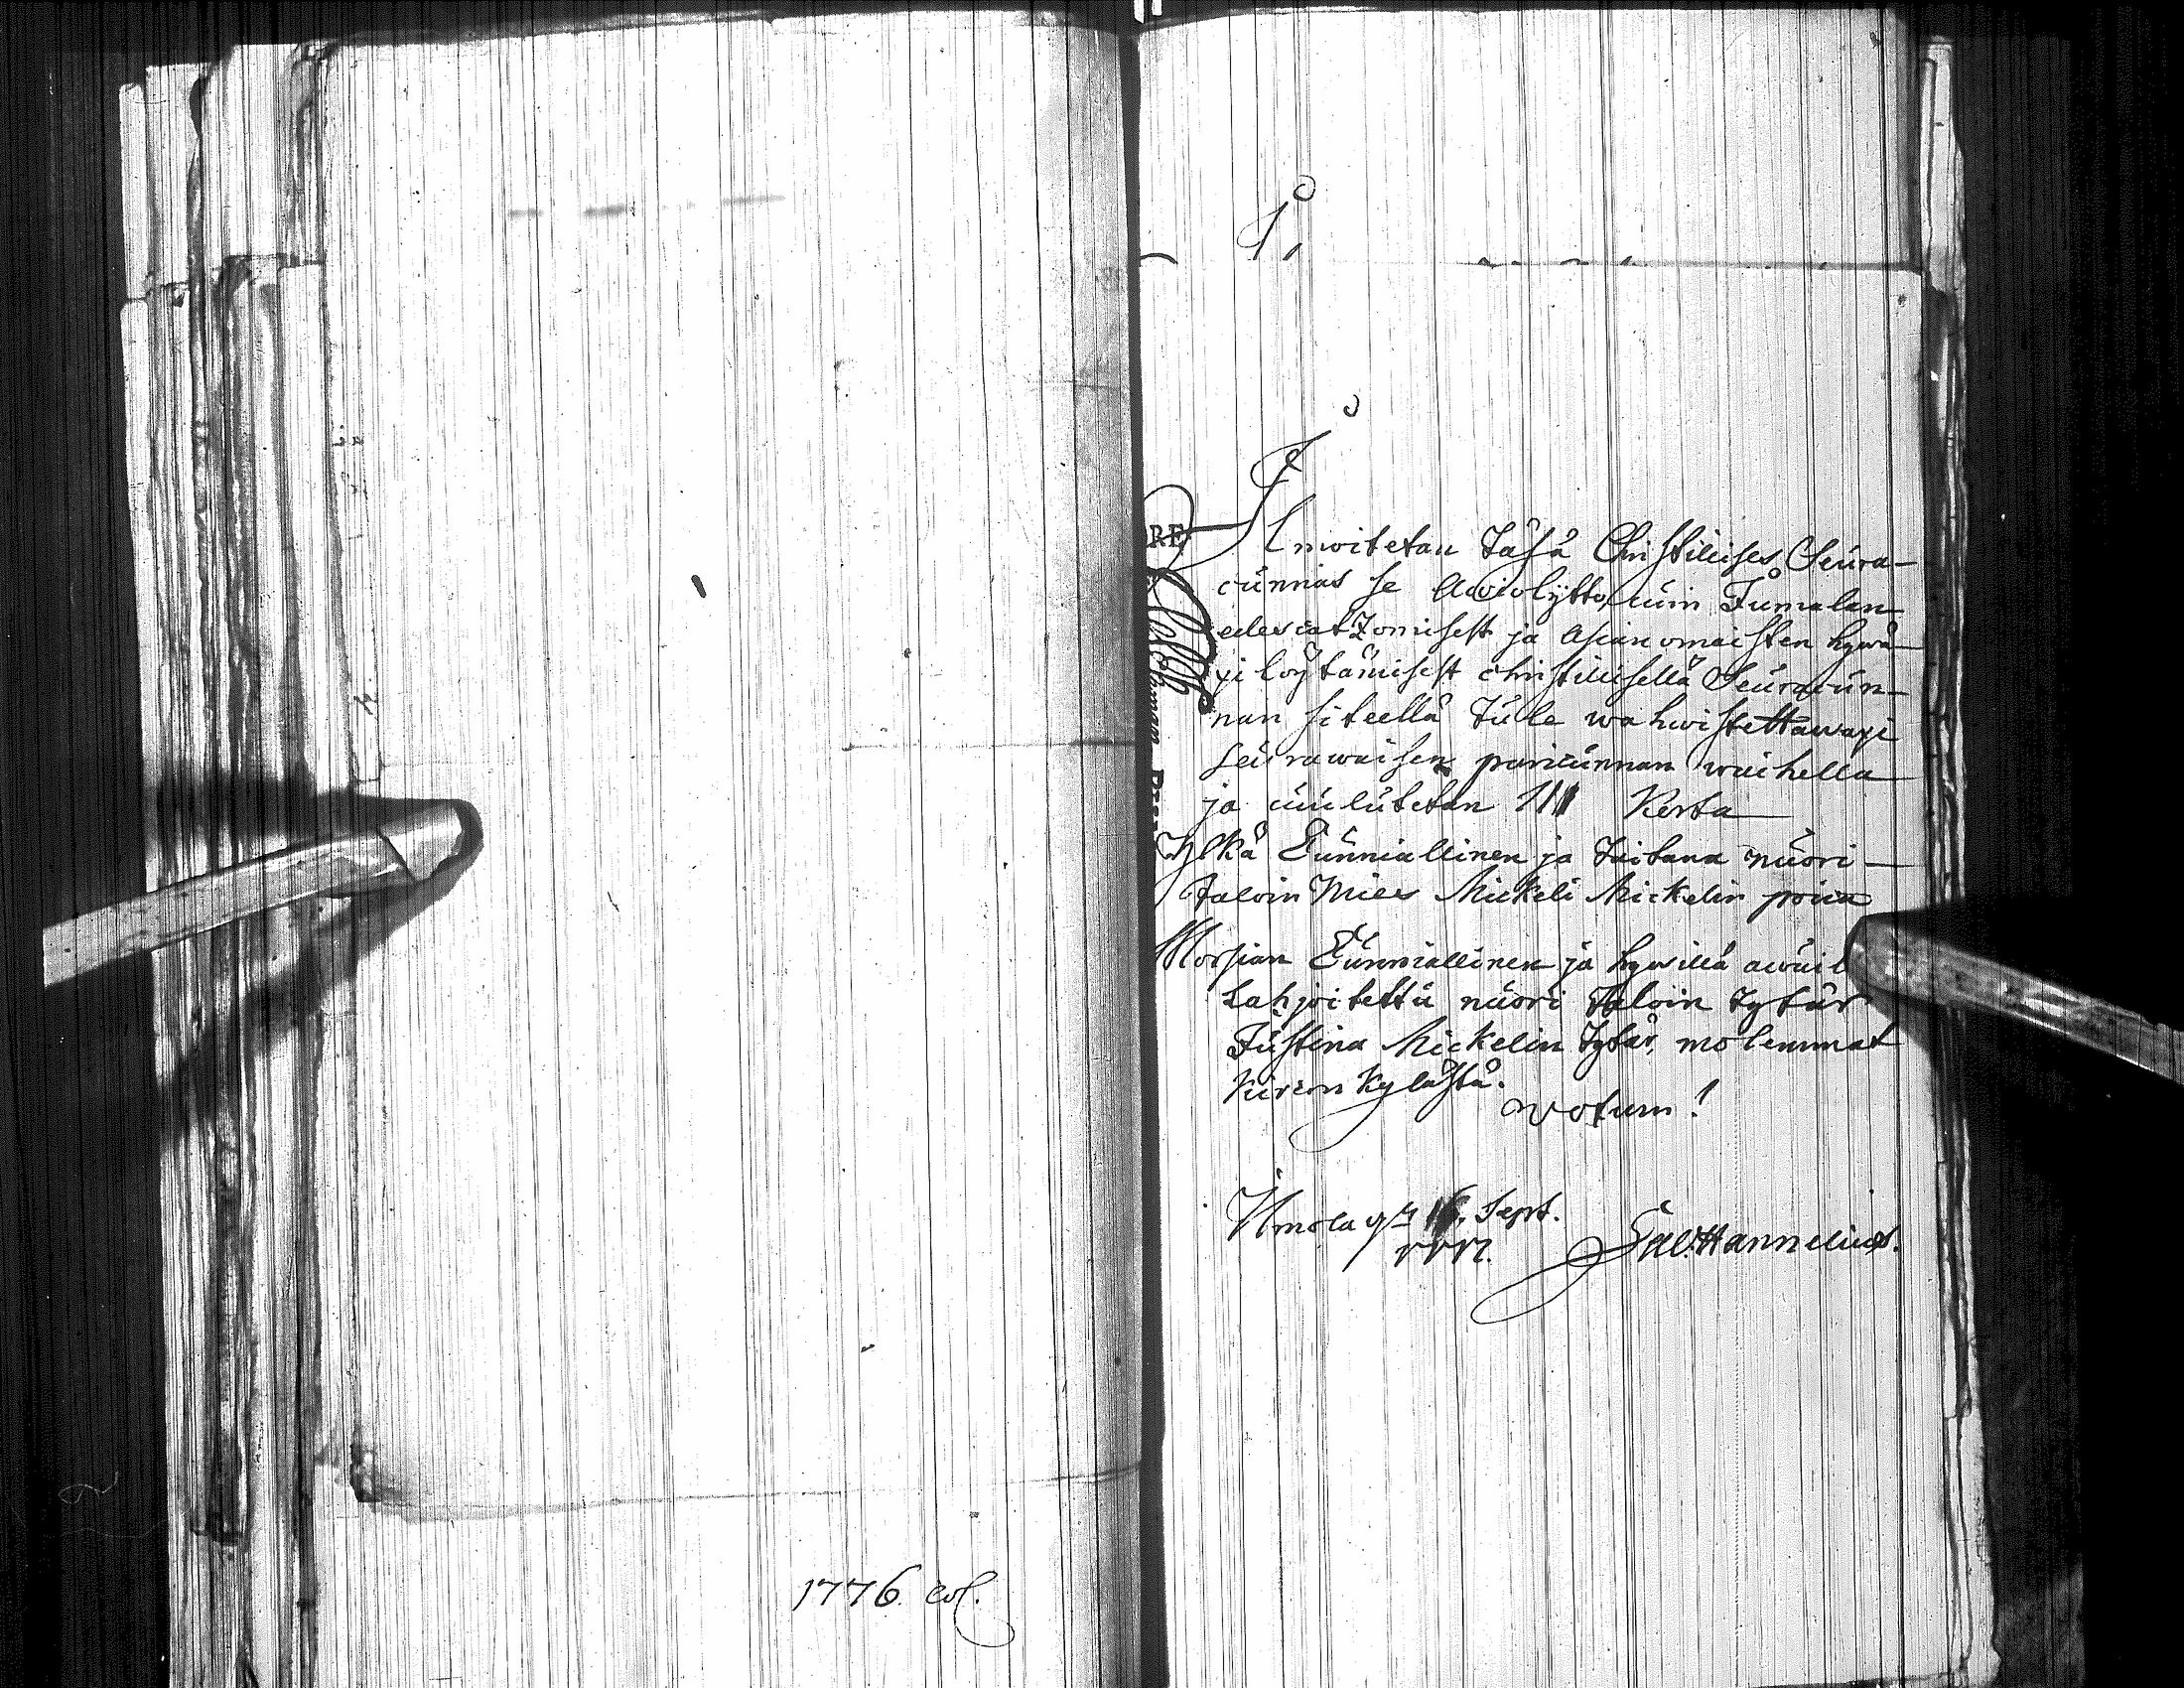 1776. col.
Ilmoitetan täsä Christillises Seura-
cunnas se Awiolijtto, cuin Jumalan
edescatzomisest ja Asianomaisten hywä-
xi löytämisest christillisellä Seuracun-
nan siteellä tule wahwistettawaxi
seurawaisen paricunnan waihella
ja cuulutetan III Kerta
Ylkä Cunniallinen ja taitawa nuori
taloin Mies Mickeli Mickelin poica
Morsian Cunniallinen ja hywillä awuil
Lahjoitettu nuori Taloin tytär
Justina Mickelin tytär, molemmat
Kylästä.
votum!
16. Sept.
Hannelius.
RE